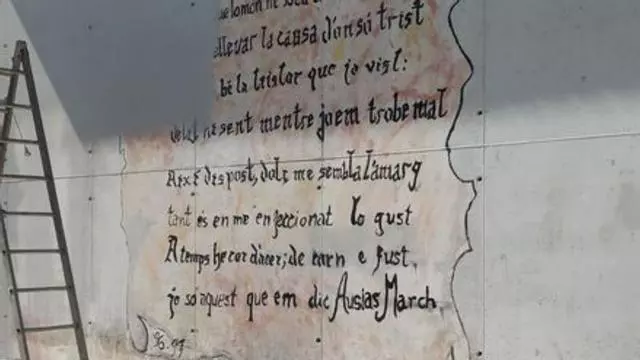 llevar la causa d'on só trist
bé la tristor que jo vist:
delit ne sent mentre jo em trobe mal
Així dispost, dolç me sembla l'amarg
tant és en me enfeccionat lo gust
A temps he cor d'acer, de carn e fust.
jo só aquest que em dic Ausias March